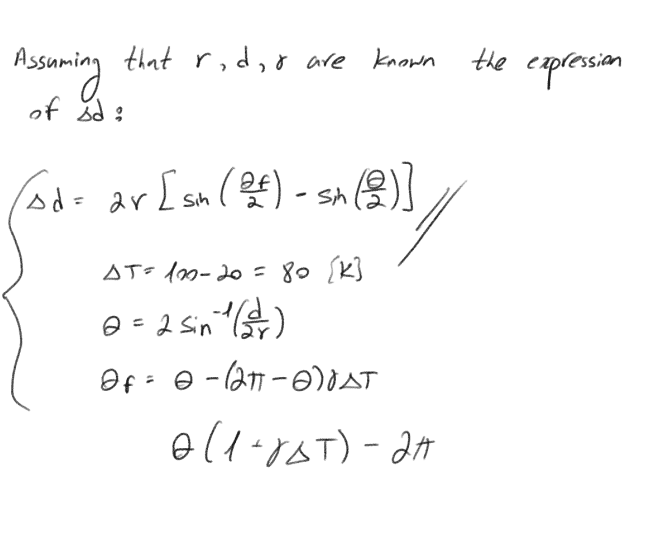 Assuming that r, d, γ are known the expression
of Δd :
Δd = 2r [sin (θf/2) - sin (θ/2)]
ΔT = 100-20 = 80 [K]
θ = 2 sin⁻¹(d/2r)
θf = θ - (2π - θ)γΔT
θ(1 + γΔT) - 2π